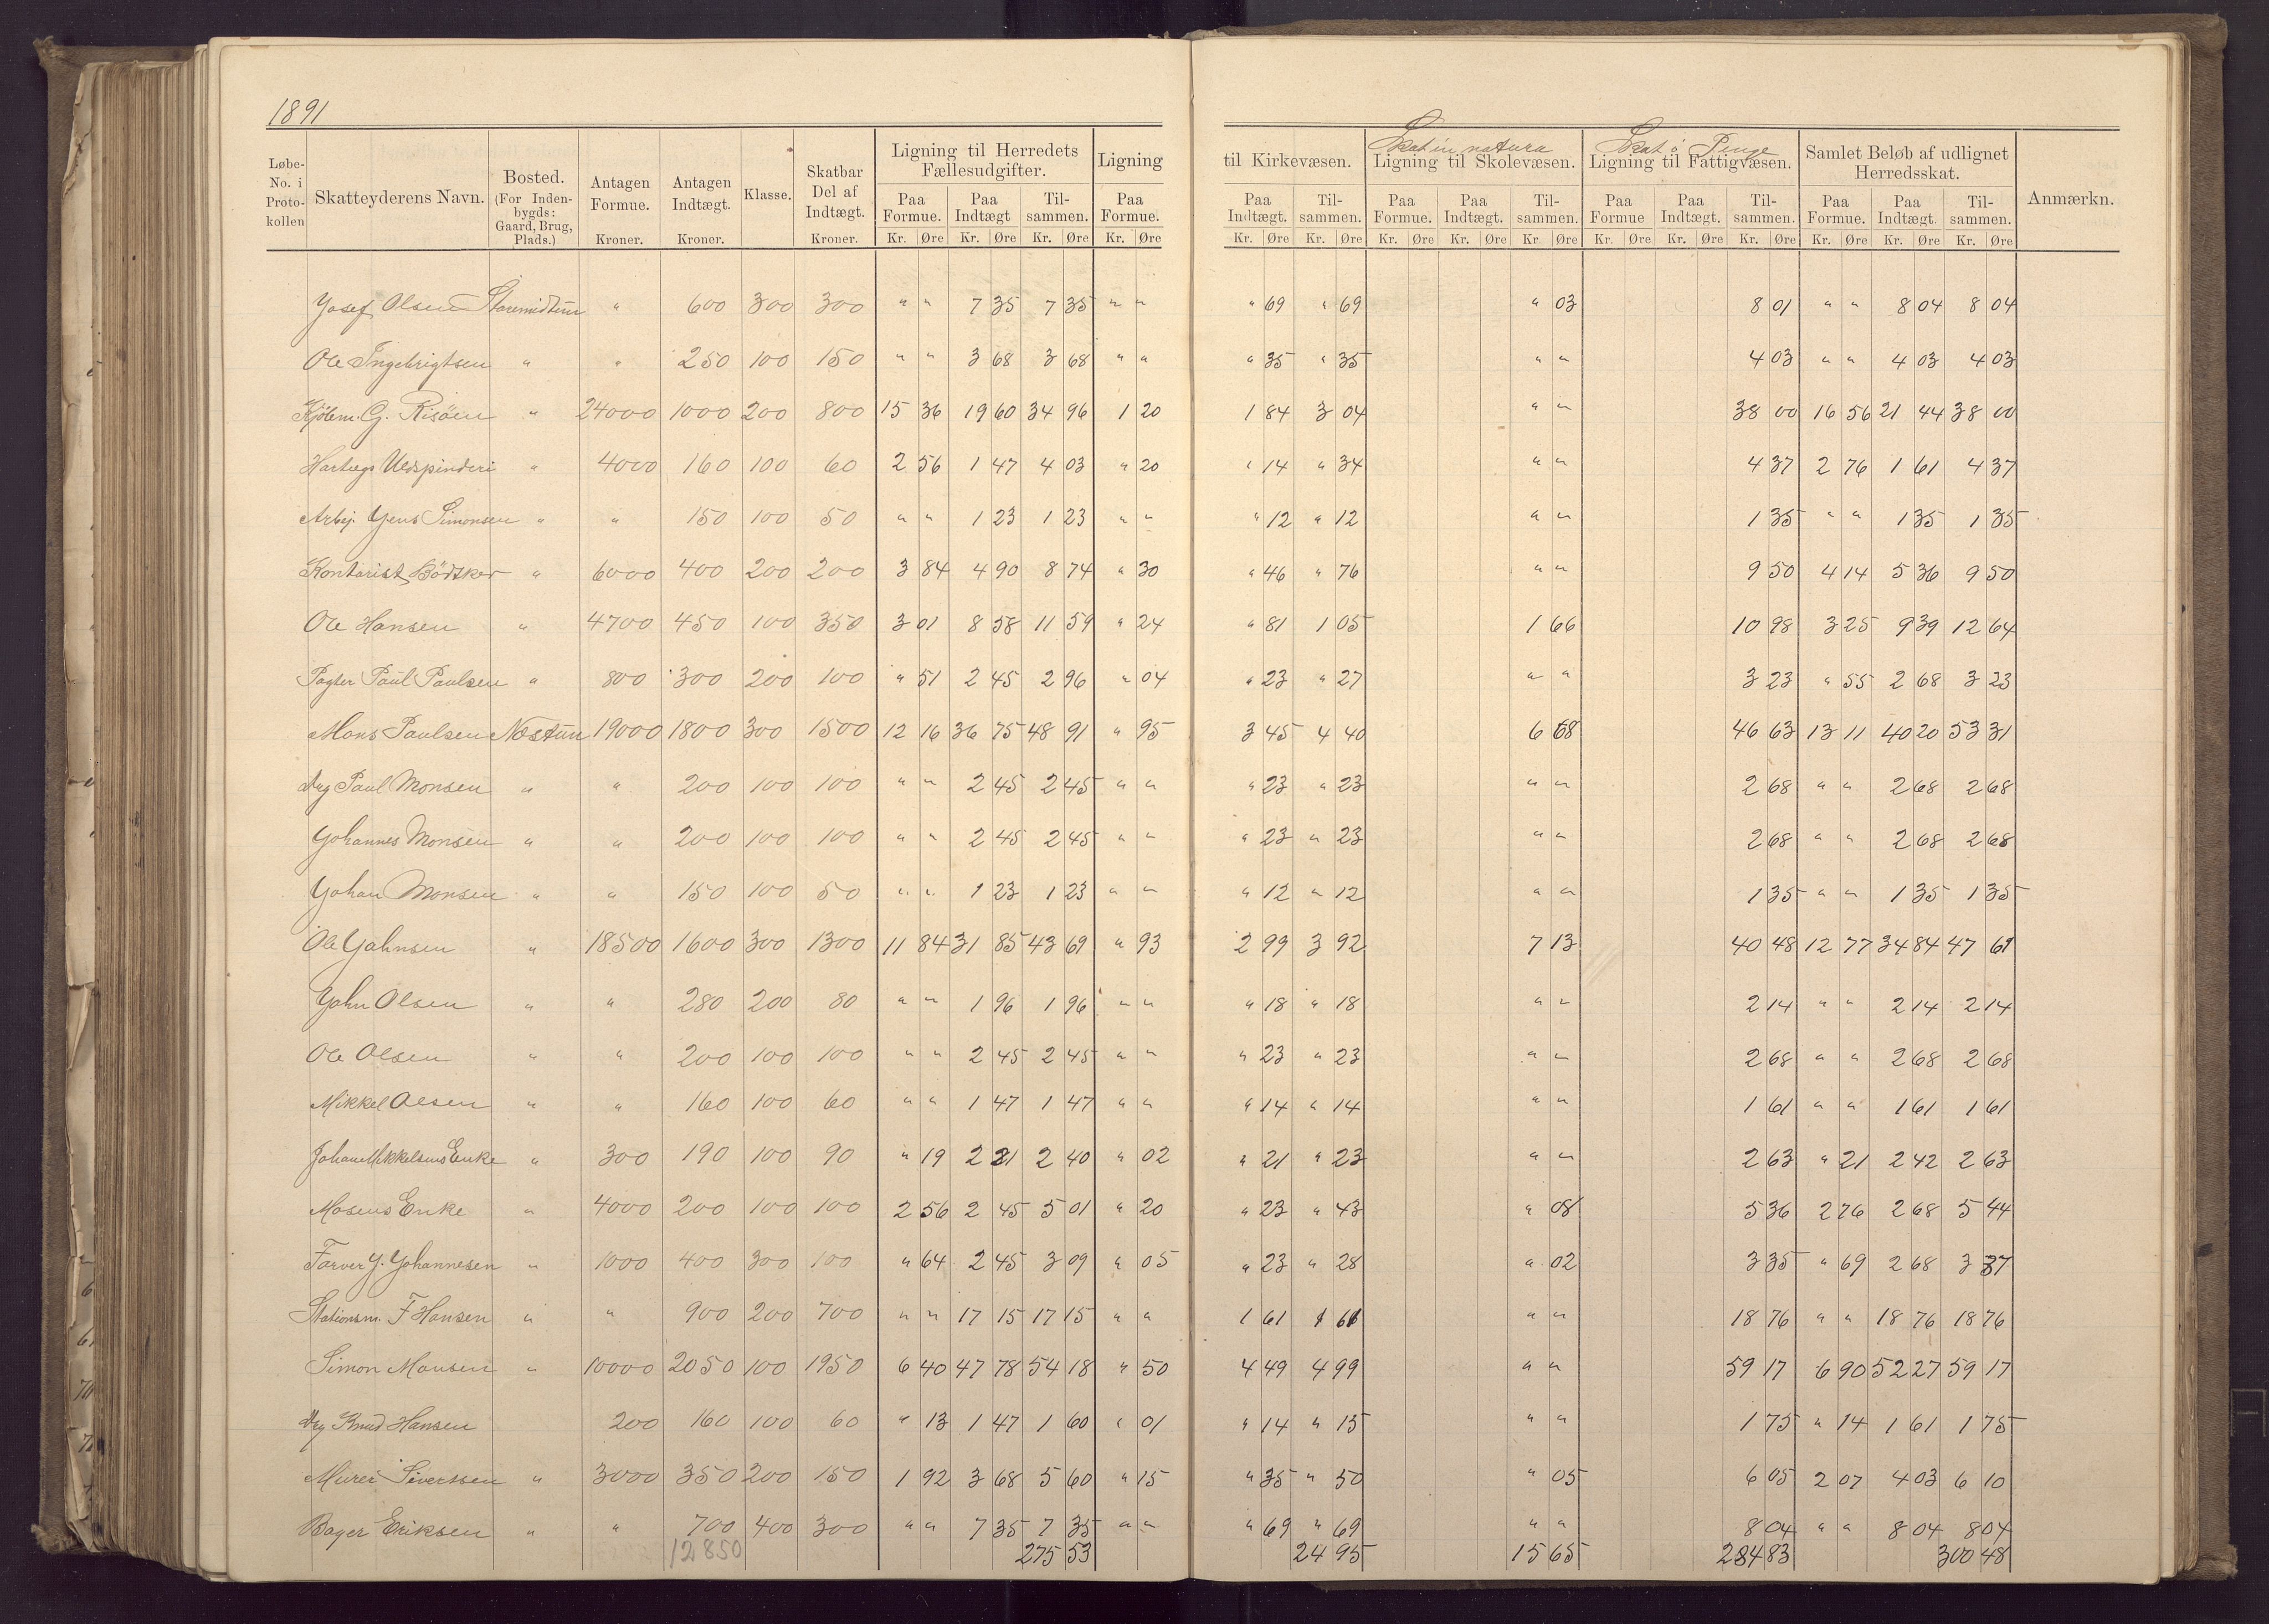 1891
Løbe-No. i Proto-kollen | Skatteyderens Navn. | Bosted. (For Inden-bygds: Gaard, Brug, Plads.) | Antagen Formue. Kroner. | Antagen Indtægt. Kroner. | Klasse. | Skatbar Del af Indtægt. Kroner. | Ligning til Herredets Fællesudgifter. Paa Formue. Kr. Øre | Paa Indtægt Kr. Øre | Til-sammen. Kr. Øre | Ligning Paa Formue. Kr. Øre | til Kirkevæsen. Paa Indtægt. Kr. Øre | Til-sammen. Kr. Øre | Skat in natura Ligning til Skolevæsen. Paa Formue. Kr. Øre | Paa Indtægt. Kr. Øre | Til-sammen. Kr. Øre | Skat i Penge Ligning til Fattigvæsen. Paa Formue Kr. Øre | Paa Indtægt. Kr. Øre | Til-sammen. Kr. Øre | Samlet Beløb af udlignet Herredsskat. Paa Formue. Kr. Øre | Paa Indtægt. Kr. Øre | Til-sammen. Kr. Øre | Anmærkn.
Josef Olsen " 600 300 300 " " 7 35 7 35 " " " 69 " 69 " 03 8 01 " " 8 04 8 04
Ole Ingebrigtsen " " 250 100 150 " " 3 68 3 68 " " " 35 " 35 " " 4 03 " " 4 03 4 03
Kjøbm. G. Risöen " 24000 1000 200 800 15 36 19 60 34 96 1 20 1 84 3 04 " " 38 00 16 56 21 44 38 00
Hartvigs Uldspinderi " 4000 160 100 60 2 56 1 47 4 03 " 20 " 14 " 34 " " 4 37 2 76 1 61 4 37
Arbej. Jens Simonsen " " 150 100 50 " " 1 23 1 23 " " " 12 " 12 " " 1 35 " " 1 35 1 35
Kontorist Bödtker " 6000 400 200 200 3 84 4 90 8 74 " 30 " 46 " 76 " " 9 50 4 14 5 36 9 50
Ole Hansen " 4700 450 100 350 3 01 8 58 11 59 " 24 " 81 1 05 1 66 10 98 3 25 9 39 12 64
Pagter Paul Paulsen " 800 300 200 100 " 51 2 45 2 96 " 04 " 23 " 27 " " 3 23 " 55 2 68 3 23
Mons Paulsen Nestun 19000 1800 300 1500 12 16 36 75 48 91 " 95 3 45 4 40 6 68 46 63 13 11 40 20 53 31
Paul Monsen " " 200 100 100 " " 2 45 2 45 " " " 23 " 23 " " 2 68 " " 2 68 2 68
Johannes Monsen " " 200 100 100 " " 2 45 2 45 " " " 23 " 23 " " 2 68 " " 2 68 2 68
Johan Monsen " " 150 100 50 " " 1 23 1 23 " " " 12 " 12 " " 1 35 " " 1 35 1 35
Ole Johnsen " 18500 1600 300 1300 11 84 31 85 43 69 " 93 2 99 3 92 7 13 40 48 12 77 34 84 47 61
John Olsen " " 280 200 80 " " 1 96 1 96 " " " 18 " 18 " " 2 14 " " 2 14 2 14
Ole Olsen " " 200 100 100 " " 2 45 2 45 " " " 23 " 23 " " 2 68 " " 2 68 2 68
Mikkel Olsen " " 160 100 60 " " 1 47 1 47 " " " 14 " 14 " " 1 61 " " 1 61 1 61
Johan Mikkelsens Enke " 300 190 100 90 " 19 2 21 2 40 " 02 " 21 " 23 " " 2 63 " 21 2 42 2 63
Mosens Enke " 4000 200 100 100 2 56 2 45 5 01 " 20 " 23 " 43 " 08 5 36 2 76 2 68 5 44
Farver J. Johannesen " 1000 400 300 100 " 64 2 45 3 09 " 05 " 23 " 28 " 02 3 35 " 69 2 68 3 37
Stationsm. F Hansen " " 900 200 700 " " 17 15 17 15 " " 1 61 1 61 " " 18 76 " " 18 76 18 76
Simon Monsen " 10000 2050 100 1950 6 40 47 78 54 18 " 50 4 49 4 99 " " 59 17 6 90 52 27 59 17
Knud Hansen 200 160 100 60 " 13 1 47 1 60 " 01 " 14 " 15 " " 1 75 " 14 1 61 1 75
Murer Sivertsen " 3000 350 200 150 1 92 3 68 5 60 " 15 " 35 " 50 " 05 6 05 2 07 4 03 6 10
Bager Eriksen " " 700 400 300 " " 7 35 7 35 " " " 69 " 69 " " 8 04 " " 8 04 8 04
12850 275 53 24 95 15 65 284 83 300 48